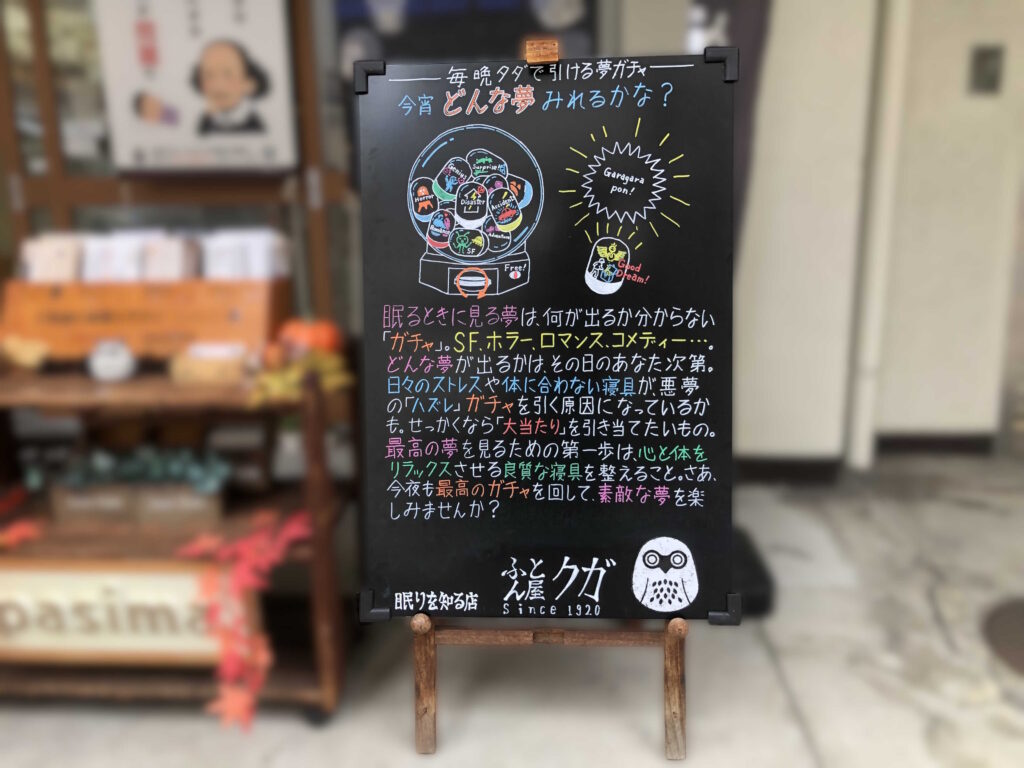 毎晩タダで引ける夢ガチャ
今宵どんな夢みれるかな？
Surprise
Horror
Disaster
Accident
SF
Free!
Garagara
pon!
Good
Dream!
眠るときに見る夢は、何が出るか分からない
「ガチャ」。SF、ホラー、ロマンス、コメディー…。
どんな夢が出るかは、その日のあなた次第。
日々のストレスや体に合わない寝具が、悪夢
の「ハズレ」ガチャを引く原因になっているか
も。せっかくなら「大当たり」を引き当てたいもの。
最高の夢を見るための第一歩は、心と体を
リラックスさせる良質な寝具を整えること。さあ、
今夜も最高のガチャを回して、素敵な夢を楽
しみませんか？
眠りを知る店
ふとん屋クガ
Since 1920
pasima